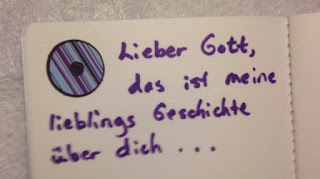 Lieber Gott,
das ist meine
lieblings Geschichte
über dich ...